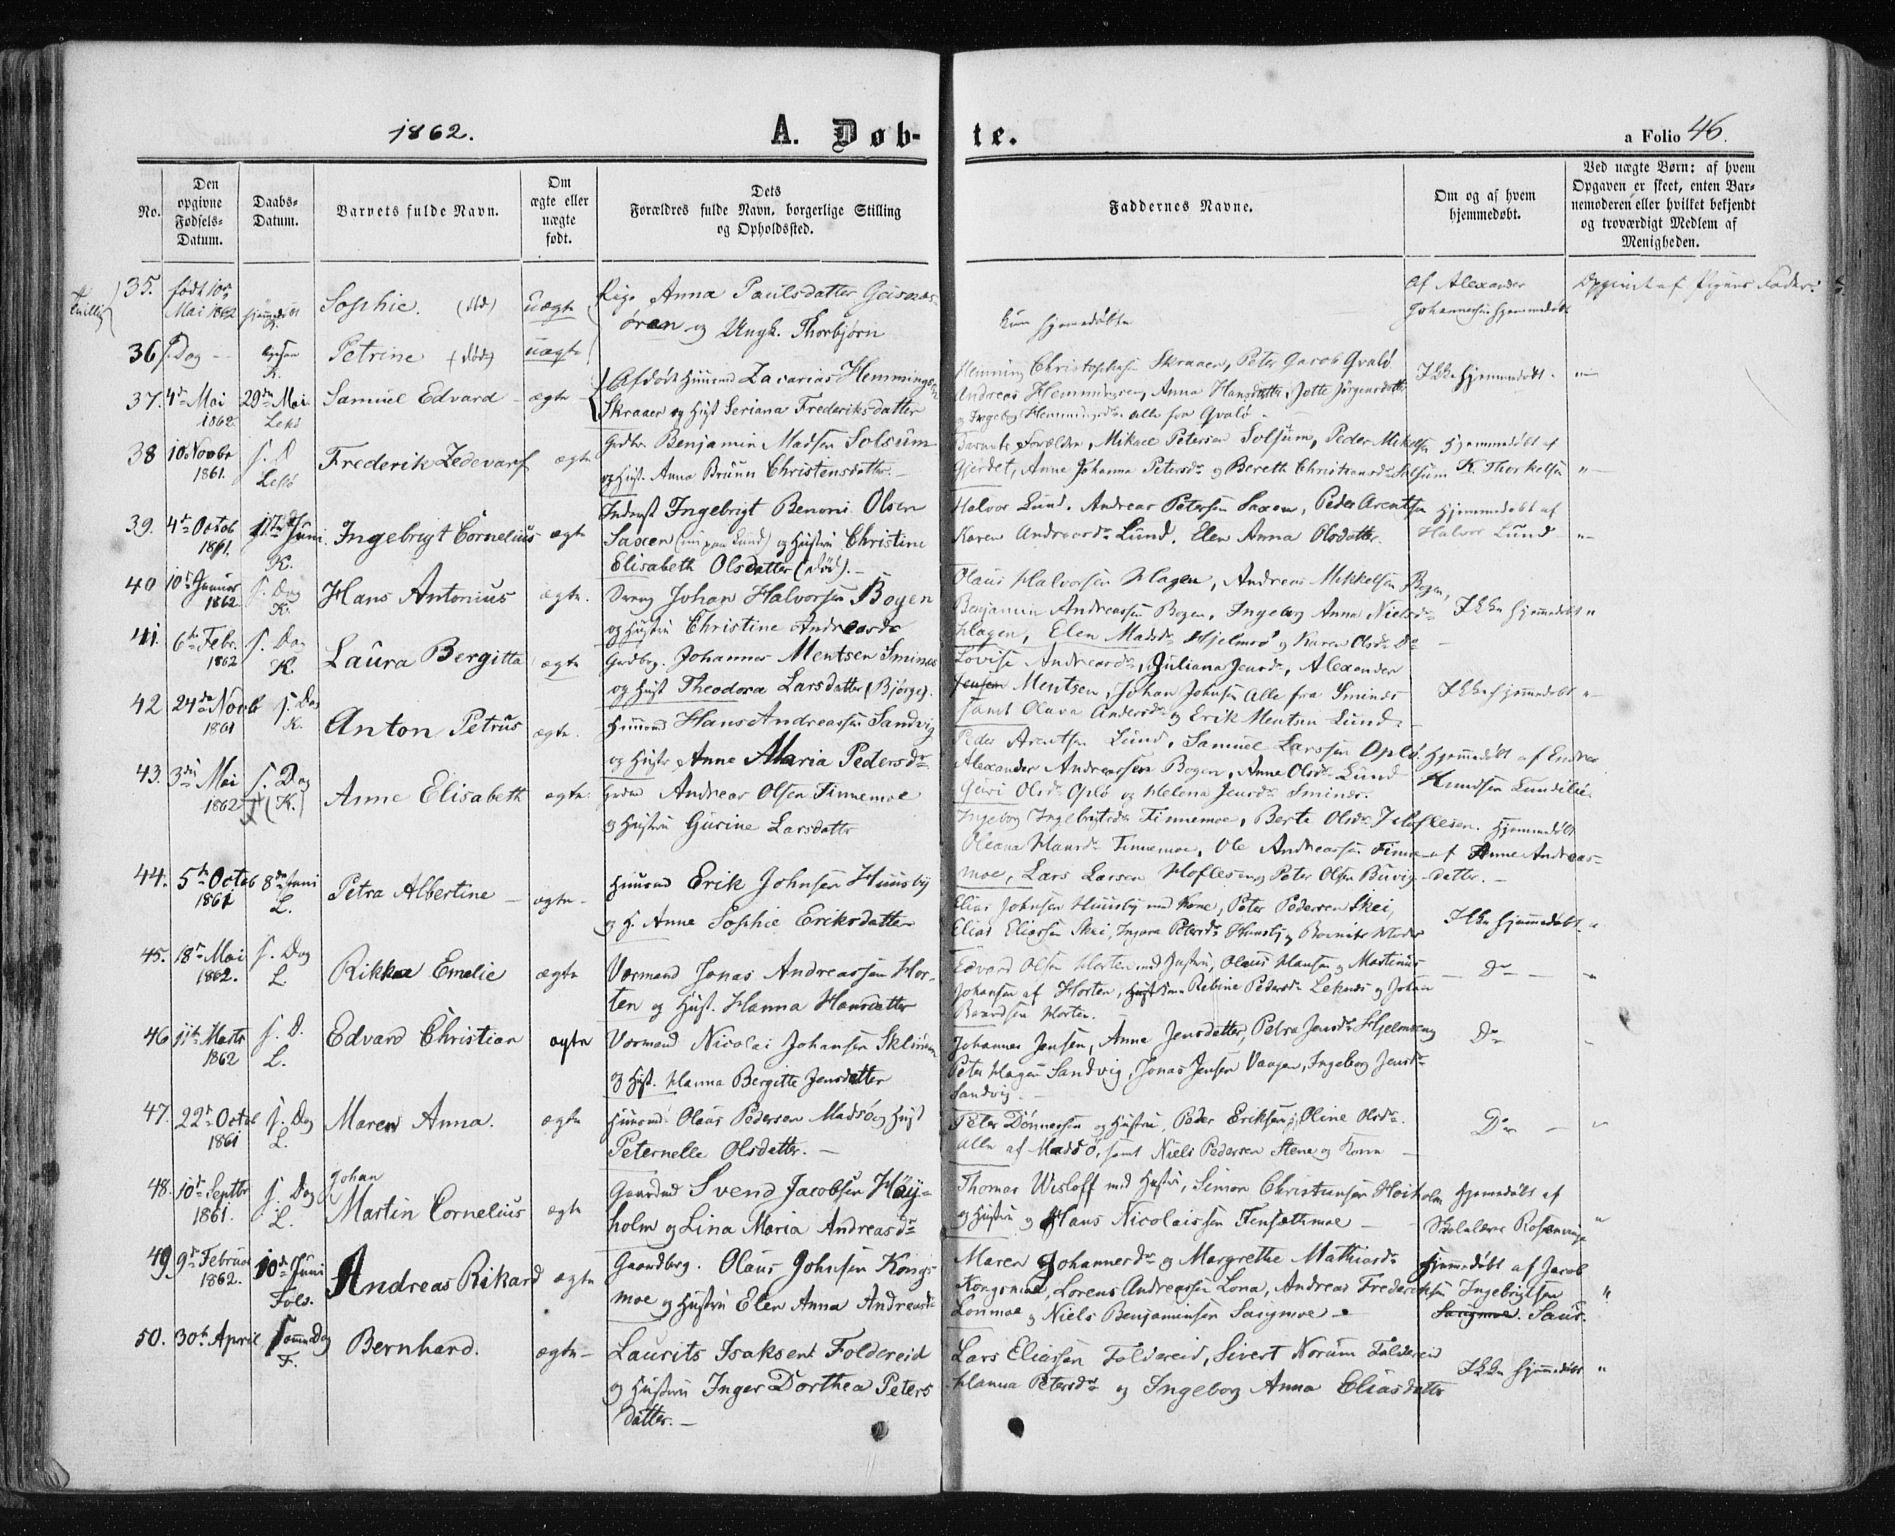 1862.
A. Døb-
te.
a Folio 46.
No.
Den opgivne Fødsels-Datum.
Daabs-Datum.
Barnets fulde Navn.
Om ægte eller uægte født.
Dets Forældres fulde Navn, borgerlige Stilling og Opholdssted.
Faddernes Navne.
Om og af hvem hjemmedøbt.
Ved uægte Børn: af hvem Opgaven er skeet, enten Barnemoderen eller hvilket bekjendt og troværdigt Medlem af Menigheden.
35. født 10de Mai 1862 Sophie. (død) Uægte Pige Anna Paulsdatter
øren og Ungk. Thorbjørn
Kun hjemmedøbte
Af Alexander
Johannesen hjemmedøbt
Opgivet af Pigens Fader
36 s. Dag Petrine (død) uægte
37. 4de Mai 1862 29de Mai Lekø Samuel Edvard ægte Afdøde Huusmd Zacarias Hemmingsen
Skraaen og Hust Seriana Frederiksdatter
Henning Christophersen Skraaen, Peter Jacob Qvalø
Andreas Hemmingsen, Anna Hansdatter, Jotte Jørgensdatter
og Ingebor Hemmingsdtr alle fra Qvalø
Ikke hjemmedøbt
38 10 Novbr 1861. s. D Lekø Frederik Zedevarf ægte Grdbr. Benjamin Madsen Solsum
og Hust. Anna Bruun Christensdatter
Barnets Forældre, Mikael Petersen Solsum, Peder Mikelsen
Gjerdet, Anne Johanna Petersdr og Bereth Christiansdr Solsum
Hjemmedøbt af
K. Thorkelsen
39. 4de Octob 1861. 1ste Juni K. Ingebrigt Cornelius ægte Inderst Ingebrigt Benoni Olsen
Saxen (nu paa Lund) og Hustru Christine
Elisabeth Olsdatter (død).
Halvor Lund, Andreas Petersen Saxen, Peder Arentsen
Karen Andreasdr Lund, Elen Anna Olsdatter.
Hjemmedøbt af
Halvor Lund
40 10de Januar 1862 s. Dag K. Hans Antonius ægte. Johan Halvorsen Bogen
og Hustru Christine Andreasdr
Olaus Halvorsen Hagen, Andreas Mikkelsen Bogen,
Benjamin Andreassen Bogen, Ingebor Anna Nielsdr
Hagen, Elen Madsdr Hjelmsø og Karen Olsdr Do
Ikke hjemmedøbt
41. 6te Febr. 1862 s. Dag K. Laura Bergitta ægte Gaardbrg. Johannes Mentsen Smines
og Hust Theodora Larsdatter (Bjørge).
Lovise Andreasdr, Juliana Jensdr, Alexander
Mentsen, Johan Johnsen Alle fra Smines
samt Olava Andersdr og Erik Mentsen Lund.
Ikke hjemmedøbt
42 24de Novb 1861 s. Dag K. Anton Petrus ægte. Huusmd Hans Andreassen Sandvig
og Hustr Anne Maria Pedersdr
Peder Arentsen Lund, Samuel Larssen Oplø
Alexander Andreassen Bogen, Anne Olsdr Lund
Guri Olsdr Oplø og Helena Jensdr Smines.
Hjemmedøbt af Endre
Knudsen Lundilie.
43. 3die Mai 1862 s. Dag (K.) Anne Elisabeth ægte. Andreas Olsen Finnemoe
og Hustru Gurine Larsdatter
Ingebor Ingebrigtsdr Finnemoe, Berte Olsdr Hoflesen.
Oleana Hansdr Finnemoe, Ole Andreassen Finne-
moe, Lars Larsen Hoflesen og Peter Olsen Buvig
Hjemmedøbt
af Anne Andreas-
datter.
44. 5te Octob 1861 8de Juni L. Petra Albertine ægte. Huusmd Erik Johnsen Huusby
og H. Anne Sophie Eriksdatter
Elias Johnsen Huusby med Kone, Peter Pedersen Skei,
Elias Eliassen Skei, Petersdr Huusby og Barnets Moder
Ikke hjemmedøbt
45. 18de Mai 1862. s. Dag L Rikka Emelie ægte Vormand Jonas Andreassen Hor-
ten og Hust. Hanna Hansdatter
Edvard Olsen Horten med Hustru, Olaus Hansen og Martinus
Johansen af Horten, Rebine Pedersdr Leknes og Johan
Horten.
Do
46 11te Marts 1862 s. D. L. Edvard Christian ægte Vormand Nicolai Johansen
og Hust. Hanna Bergitte Jensdatter
Johannes Jensen, Anne Jensdatter, Petra Jensdr
Peter Hagen Sandvig, Jonas Jensen Vaagen, Ingebor Jensdr
Sandvig.
Do
47. 22de Octob 1861 s. Dag L. Maren Anna. ægte Huusmd. Olaus Pedersen Madsø og Hust
Peternelle Olsdatter.
Peter Dønnessen og Hustru, Peder Eriksen, Oline Olsdr.
alle af Madsø, samt Niels Pedersen Stene og Kone
Do
48. 10de Septbr 1861. s. Dag L. Johan
Martin Cornelius ægte Gaardmd Svend Jacobsen Høy-
holm og Lina Maria Andreasdr
Thomas Wisloff med Hustru, Simon Christiansen Høiholm
og Hustru og Hans Nicolaissen
Hjemmedøbt af
Skolelærer Rosenvinge
49. 9de Februar 1862. 10de Juni Fold. Andreas Rikard ægte Gaardbrg. Olaus Johnsen Kongs-
moe og Hustru Elen Anna Andreasdr
Maren Johannesdr og Margrethe Mathiasdr
Kongsmoe, Lorens Andreassen Lona, Andreas Frederiksen
Lonmoe og Niels Benjaminsen Sarigmoe
Hjemmedøbt af Jacob
Ingebrigtsen
Sarigmoe.
50. 30te April samme Dag F. Bernhard. ægte Laurits Isaksen Foldereid
og Hustru Inger Dorthea Peters
datter.
Lars Eliassen Foldereid, Sivert Norum Foldereid
Hanna Petersdr og Ingebor Anna Eliasdatter
Ikke hjemmedøbt